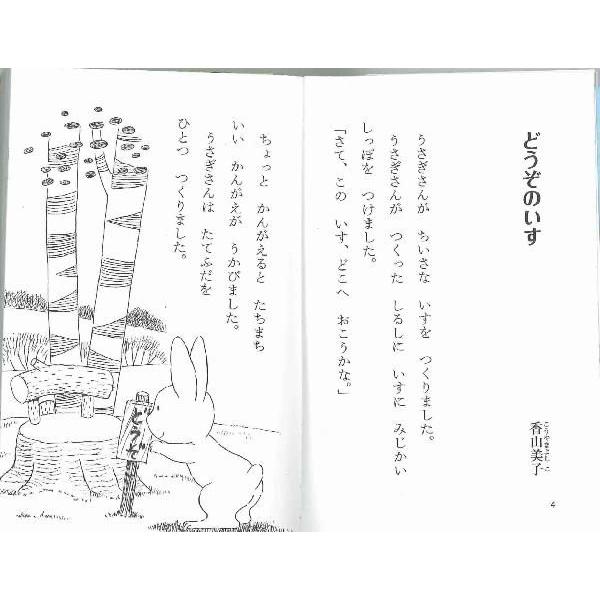 どうぞのいす
香山美子
こうやまよしこ
うさぎさんが ちいさな いすを つくりました。
うさぎさんが つくった しるしに いすに みじかい
しっぽを つけました。
「さて、この いす、どこへ おこうかな。」
4
ちょっと かんがえると たちまち
いい かんがえが うかびました。
うさぎさんは たてふだを
ひとつ つくりました。
どうぞ